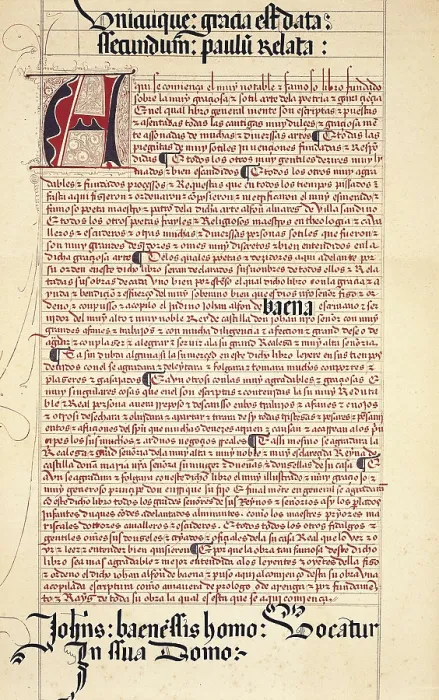 Unicuique: gracia est data:
secundum: paulu Relata:
Aqui se comiença el muy notable & famoso libro fundado
sobre la muy graçiosa & sotil arte dela poetria & gaya çiençia
En el qual libro general mente son escriptas & puestas
& asentadas todas las cantigas muy dulçes & graçiosa men
te assonadas de muchas & diuerssas artes ¶ E todas las
preguntas de muy sotiles inuençiones fundadas & Respon
didas ¶ E todos los otros muy gentiles dezires muy ly
mados & bien escandidos ¶ E todos los otros muy agra
dables & fundados proçessos & Requestas que en todos los tiempos passados
fasta aqui fisieron & ordenaron & conpusieron & metrificaron el muy esmerado
famoso poeta maestro & patron dela dicha arte alfon aluares de villa sandino
E todos los otros poetas frayles & Religiosos maestros en theologia & caua
lleros & escuderos & otras muchas & diuerssas personas sotiles que fueron
son muy grandes desidores & omes muy discretos & bien entendidos en la
dicha graçiosa arte ¶ Delos quales poetas & desidores aqui adelante por
su orden en este dicho libro seran declarados sus nonbres de todos ellos & Rela
tadas sus obras de cada vno bien por estenso el qual dicho libro con la graçia & a
yuda & bendiçion & esfuerço del muy soberano bien que es dios nro señor fizo & or
deno & conpuso & acopilo el judino johan alfon de baena escriuano & ser
uidor del muy alto & muy noble Rey de castilla don johan nro señor con muy
grandes afanes & trabajos & con mucha diligençia & afection & grand deseo de
agradar & conplazer & alegrar & seruir ala su grand Realesa & muy alta señoria
¶ Ca sin dubda alguna si la su merçed en este dicho libro leyere en sus tienpos
deuidos con el se agradara & deleytara & folgara & tomara muchos conportes
plaseres & gasajados ¶ E avn otrosi con las muy agradables & graçiosas E
muy singulares cosas que enel son escriptas & contenidas la su muy Redutta
ble & Real persona auera Reposo & descansso en los trabajos & afanes & enojos
& otrosi desechara & oluidara & apartara & tirara de sy todas tristesas & pesares & pensami
entos & afliçiones del spu que muchas de veses atraen & causan & acarrean alos prin
çipes los sus muchos & arduos negoçios Reales ¶ E assi mesmo se agradara la
Realesa & grand señoria dela muy alta & muy noble & muy esclareçida Reyna de
castilla doña maria nra señora su muger & dueñas & donsellas de su casa ¶ E
avn se agradara & folgara con este dicho libro el muy illustrado & muy graçioso &
muy generoso prinçipe don enrrique su fijo E final mente en general se agradaran
con este dicho libro todos los grandes señores de sus Reynos & señorios asy los perlados
infantes duques condes adelantados almirantes como los maestres priores ma
riscales dottores caualleros & escuderos E todos los otros fidalgos &
gentiles omes sus donseles & criados & ofiçiales dela su casa Real que lo ver & o
yr & leer & entender bien quisieren ¶ E por que la obra tan famosa deste dicho
libro sea mas agradable & mejor entendida alos leyentes & oyentes della fiso
& ordeno el dicho johan alfon de baena & puso aqui al comienço desta su obra vna
acopilada escriptura como amanera de prologo o de arenga & por fundamen
to & Rays de toda su obra la qual es esta que se aqui comiença
Johns: baenessis homo: Vocatur
In sua Domo: